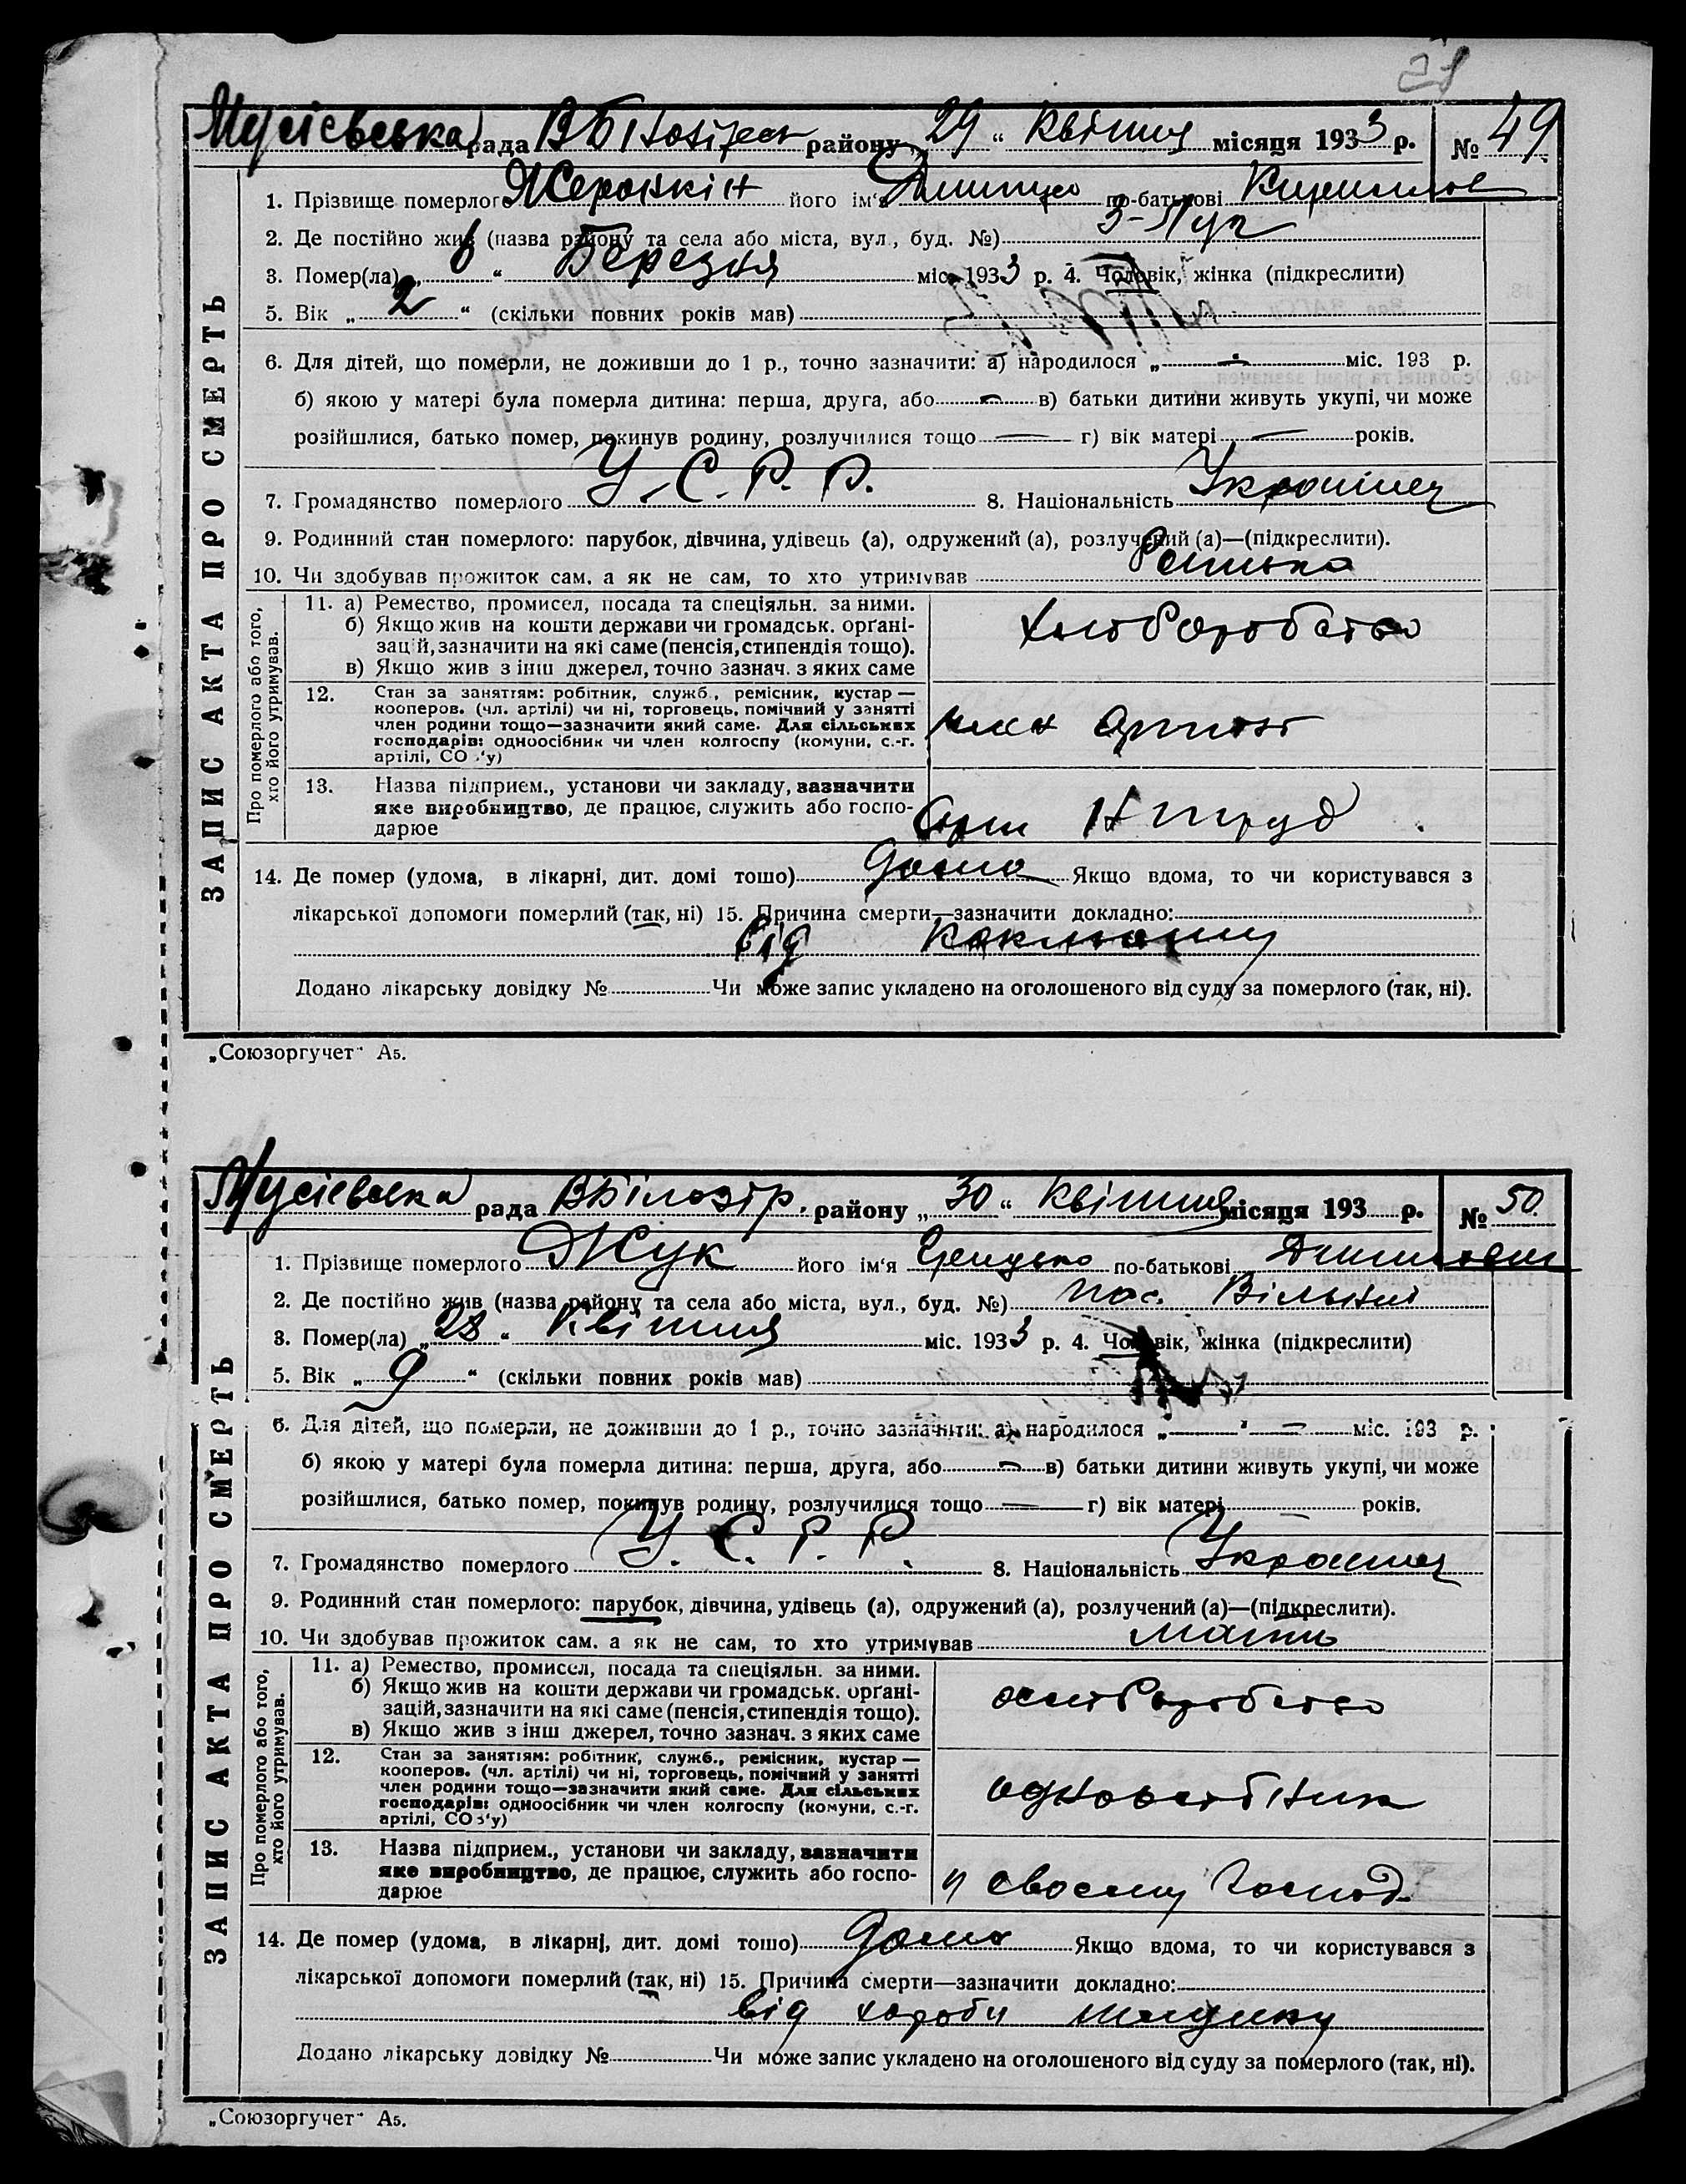 21
Мусієвська рада ВБілозірськ району „29“ Квітня місяця 1933 р. № 49
ЗАПИС АКТА ПРО СМЕРТЬ
1. Прізвище померлого його ім'я Дмитро по-батькові Кирилов
2. Де постійно жив (назва району та села або міста, вул., буд. №)
3. Помер(ла) „6“ Березня міс. 1933 р. 4. Чоловік, жінка (підкреслити)
5. Вік „2“ (скільки повних років мав)
6. Для дітей, що померли, не доживши до 1 р., точно зазначити: а) народилося „ — міс. 193 р.
б) якою у матері була померла дитина: перша, друга, або — в) батьки дитини живуть укупі, чи може
розійшлися, батько помер, покинув родину, розлучилися тощо — г) вік матері — років.
7. Громадянство померлого У.С.Р.Р. 8. Національність Українец
9. Родинний стан померлого: парубок, дівчина, удівець (а), одружений (а), розлучений (а)—(підкреслити).
10. Чи здобував прожиток сам, а як не сам, то хто утримував
Про померлого або того, хто його утримував.
11. а) Ремество, промисел, посада та спеціяльн. за ними.
б) Якщо жив на кошти держави чи громадськ. орґані-
зацій, зазначити на які саме (пенсія, стипендія тощо).
в) Якщо жив з інш джерел, точно зазнач. з яких саме
хліборобство
12. Стан за заняттям: робітник, служб., ремісник, кустар —
кооперов. (чл. артілі) чи ні, торговець, помічний у занятті
член родини тощо—зазначити який саме. Для сільських
господарів: одноосібник чи член колгоспу (комуни, с.-г.
артілі, СОЗ'у)
член артілі
13. Назва підприєм., установи чи закладу, зазначити
яке виробництво, де працює, служить або госпо-
дарює
труд
14. Де помер (удома, в лікарні, дит. домі тощо) дома Якщо вдома, то чи користувався з
лікарської допомоги померлий (так, ні) 15. Причина смерти—зазначити докладно:
від коклюшу
Додано лікарську довідку № Чи може запис укладено на оголошеного від суду за померлого (так, ні).
„Союзоргучет“ А5.
Мусієвська рада ВБілозір. району „30“ Квітня місяця 193 р. № 50
ЗАПИС АКТА ПРО СМЕРТЬ
1. Прізвище померлого Жук його ім'я Грицько по-батькові
2. Де постійно жив (назва району та села або міста, вул., буд. №) пос. Вільний
3. Помер(ла) „28“ Квітня міс. 1933 р. 4. Чоловік, жінка (підкреслити)
5. Вік „9“ (скільки повних років мав)
6. Для дітей, що померли, не доживши до 1 р., точно зазначити: а) народилося „—“ — міс. 193 р.
б) якою у матері була померла дитина: перша, друга, або — в) батьки дитини живуть укупі, чи може
розійшлися, батько помер, покинув родину, розлучилися тощо — г) вік матері — років.
7. Громадянство померлого У.С.Р.Р. 8. Національність Українец
9. Родинний стан померлого: парубок, дівчина, удівець (а), одружений (а), розлучений (а)—(підкреслити).
10. Чи здобував прожиток сам, а як не сам, то хто утримував мати
Про померлого або того, хто його утримував.
11. а) Ремество, промисел, посада та спеціяльн. за ними.
б) Якщо жив на кошти держави чи громадськ. орґані-
зацій, зазначити на які саме (пенсія, стипендія тощо).
в) Якщо жив з інш джерел, точно зазнач. з яких саме
хліборобство
12. Стан за заняттям: робітник, служб., ремісник, кустар —
кооперов. (чл. артілі) чи ні, торговець, помічний у занятті
член родини тощо—зазначити який саме. Для сільських
господарів: одноосібник чи член колгоспу (комуни, с.-г.
артілі, СОЗ'у)
одноосібник
13. Назва підприєм., установи чи закладу, зазначити
яке виробництво, де працює, служить або госпо-
дарює
у своєму господ.
14. Де помер (удома, в лікарні, дит. домі тощо) дома Якщо вдома, то чи користувався з
лікарської допомоги померлий (так, ні) 15. Причина смерти—зазначити докладно:
від хороби шлунку
Додано лікарську довідку № Чи може запис укладено на оголошеного від суду за померлого (так, ні).
„Союзоргучет“ А5.